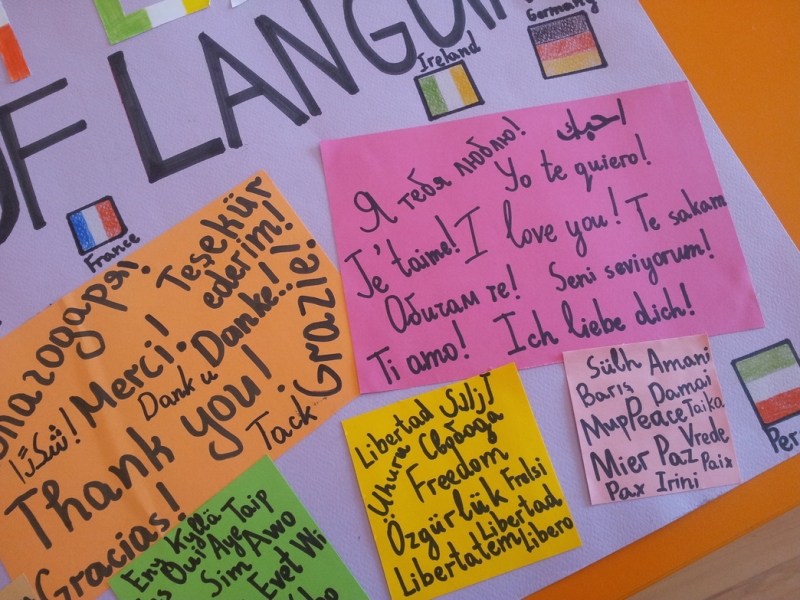 OF LANGUA
Ireland
Germany
France
Я тебя люблю! احبك
Yo te quiero!
Je t'aime! I love you! Te sakam
Обичам те! Seni seviyorum!
Ti amo! Ich liebe dich!
Teşekür
ederim!
Merci! Danke!
شكرًا! Dank u Grazie!
Thank you!
Tack
Gracias!
Libertad
Uhuru Свобода
Freedom
Özgürlük Frelsi
Libertad
Libertatem Libero
Sülh Amani
Barış Damai
Мир Peace Taika
Mier Paz Vrede
Pax Irini Paix
Kyllä Taip
Oui Aye
Sim Awo
Evet Wi